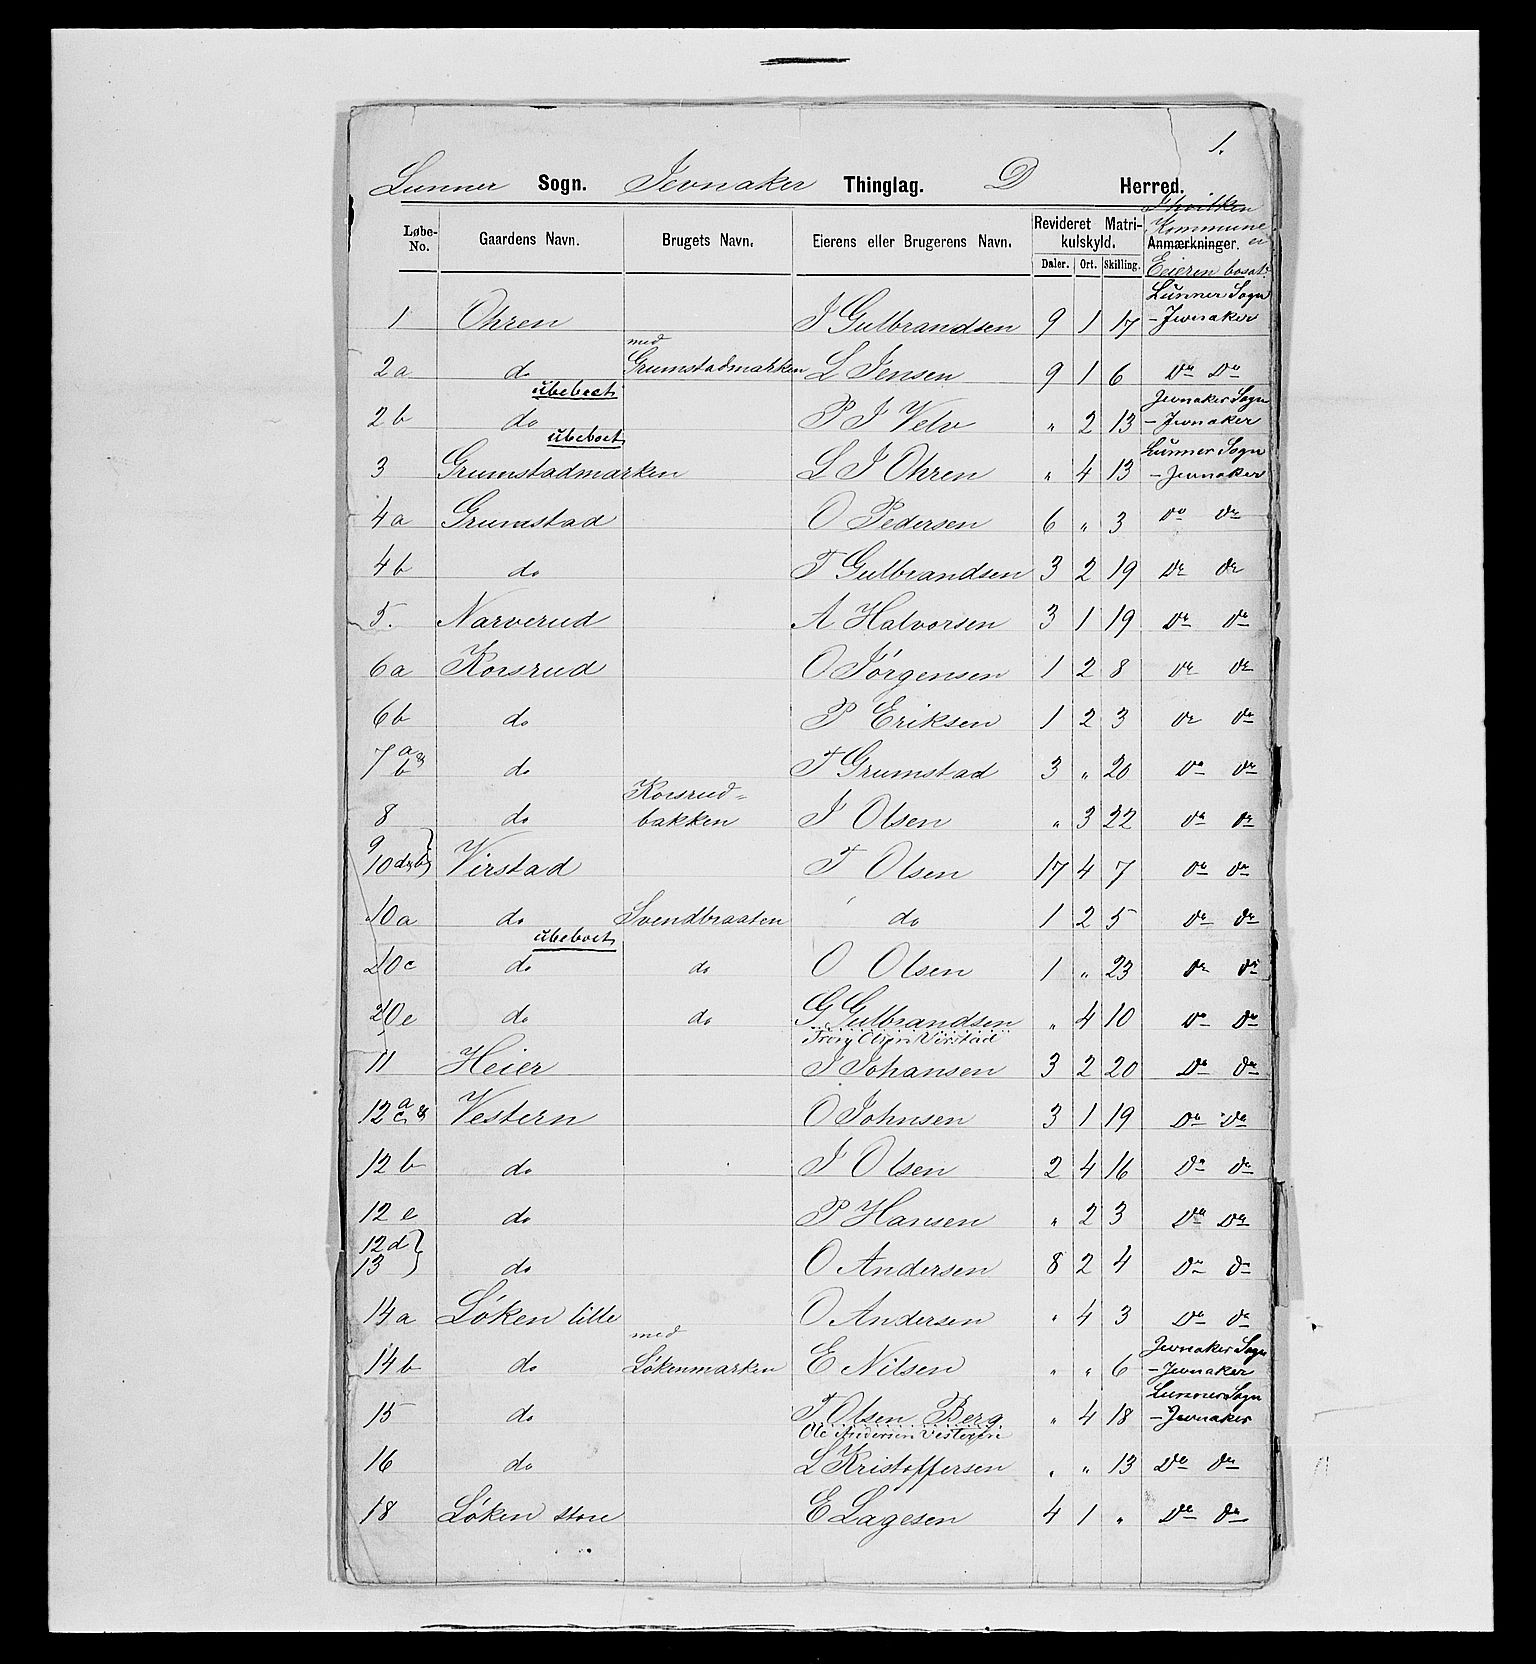 1.
Lunner Sogn. Jevnaker Thinglag. D Herred.
Løbe-No. Gaardens Navn. Brugets Navn. Eierens eller Brugerens Navn. Revideret Matrikulskyld. I hvilken Kommune er Anmærkninger. Eieren bosat.
Daler. Ort. Skilling.
Lunner Sogn
1 Ohren J Gulbrandsen 9 1 17 – Jevnaker
med
2a do Grumstadmarken L Jensen 9 1 6 Do Do
ubeboet Jevnaker Sogn
2b do P J Velo " 2 13 – Jevnaker
ubeboet Lunner Sogn
3 Grumstadmarken L J Ohren " 4 13 – Jevnaker
4a Grumstad O Pedersen 6 " 3 Do do
4b do T Gulbrandsen 3 2 19 Do do
5. Narverud A Halvorsen 3 1 19 Do do
6a Korsrud O Jörgensen 1 2 8 do do
6b do P Eriksen 1 2 3 do do
7 a & b do T Grumstad 3 " 20 Do do
Korsrud=
8 do bakken J Olsen " 3 22 do do
9
10 d&b Virstad T Olsen 17 4 7 do do
10a do Svendbraaten do 1 2 5 Do do
ubeboet
10c do do O Olsen 1 " 23 do do
10e do do G Gulbrandsen " 4 10 Do do
Olsen Virstad
11 Heier J Johansen 3 2 20 Do do
12 a & c Vestern O Johnsen 3 1 19 Do Do
12b do J Olsen 2 4 16 Do do
12e do P Hansen " 2 3 Do Do
12d
13 do O Andersen 8 2 4 Do do
14a Löken lille O Andersen " 4 3 Do do
med Jevnaker Sogn
14b do Lökenmarken E Nilsen " " 6 – Jevnaker
Lunner Sogn
15 do T Olsen Berg " 4 18 – Jevnaker
Ole Andersen Vestern
16 do L Kristoffersen " " 13 Do do
18 Löken store E Lagesen 4 1 " Do do